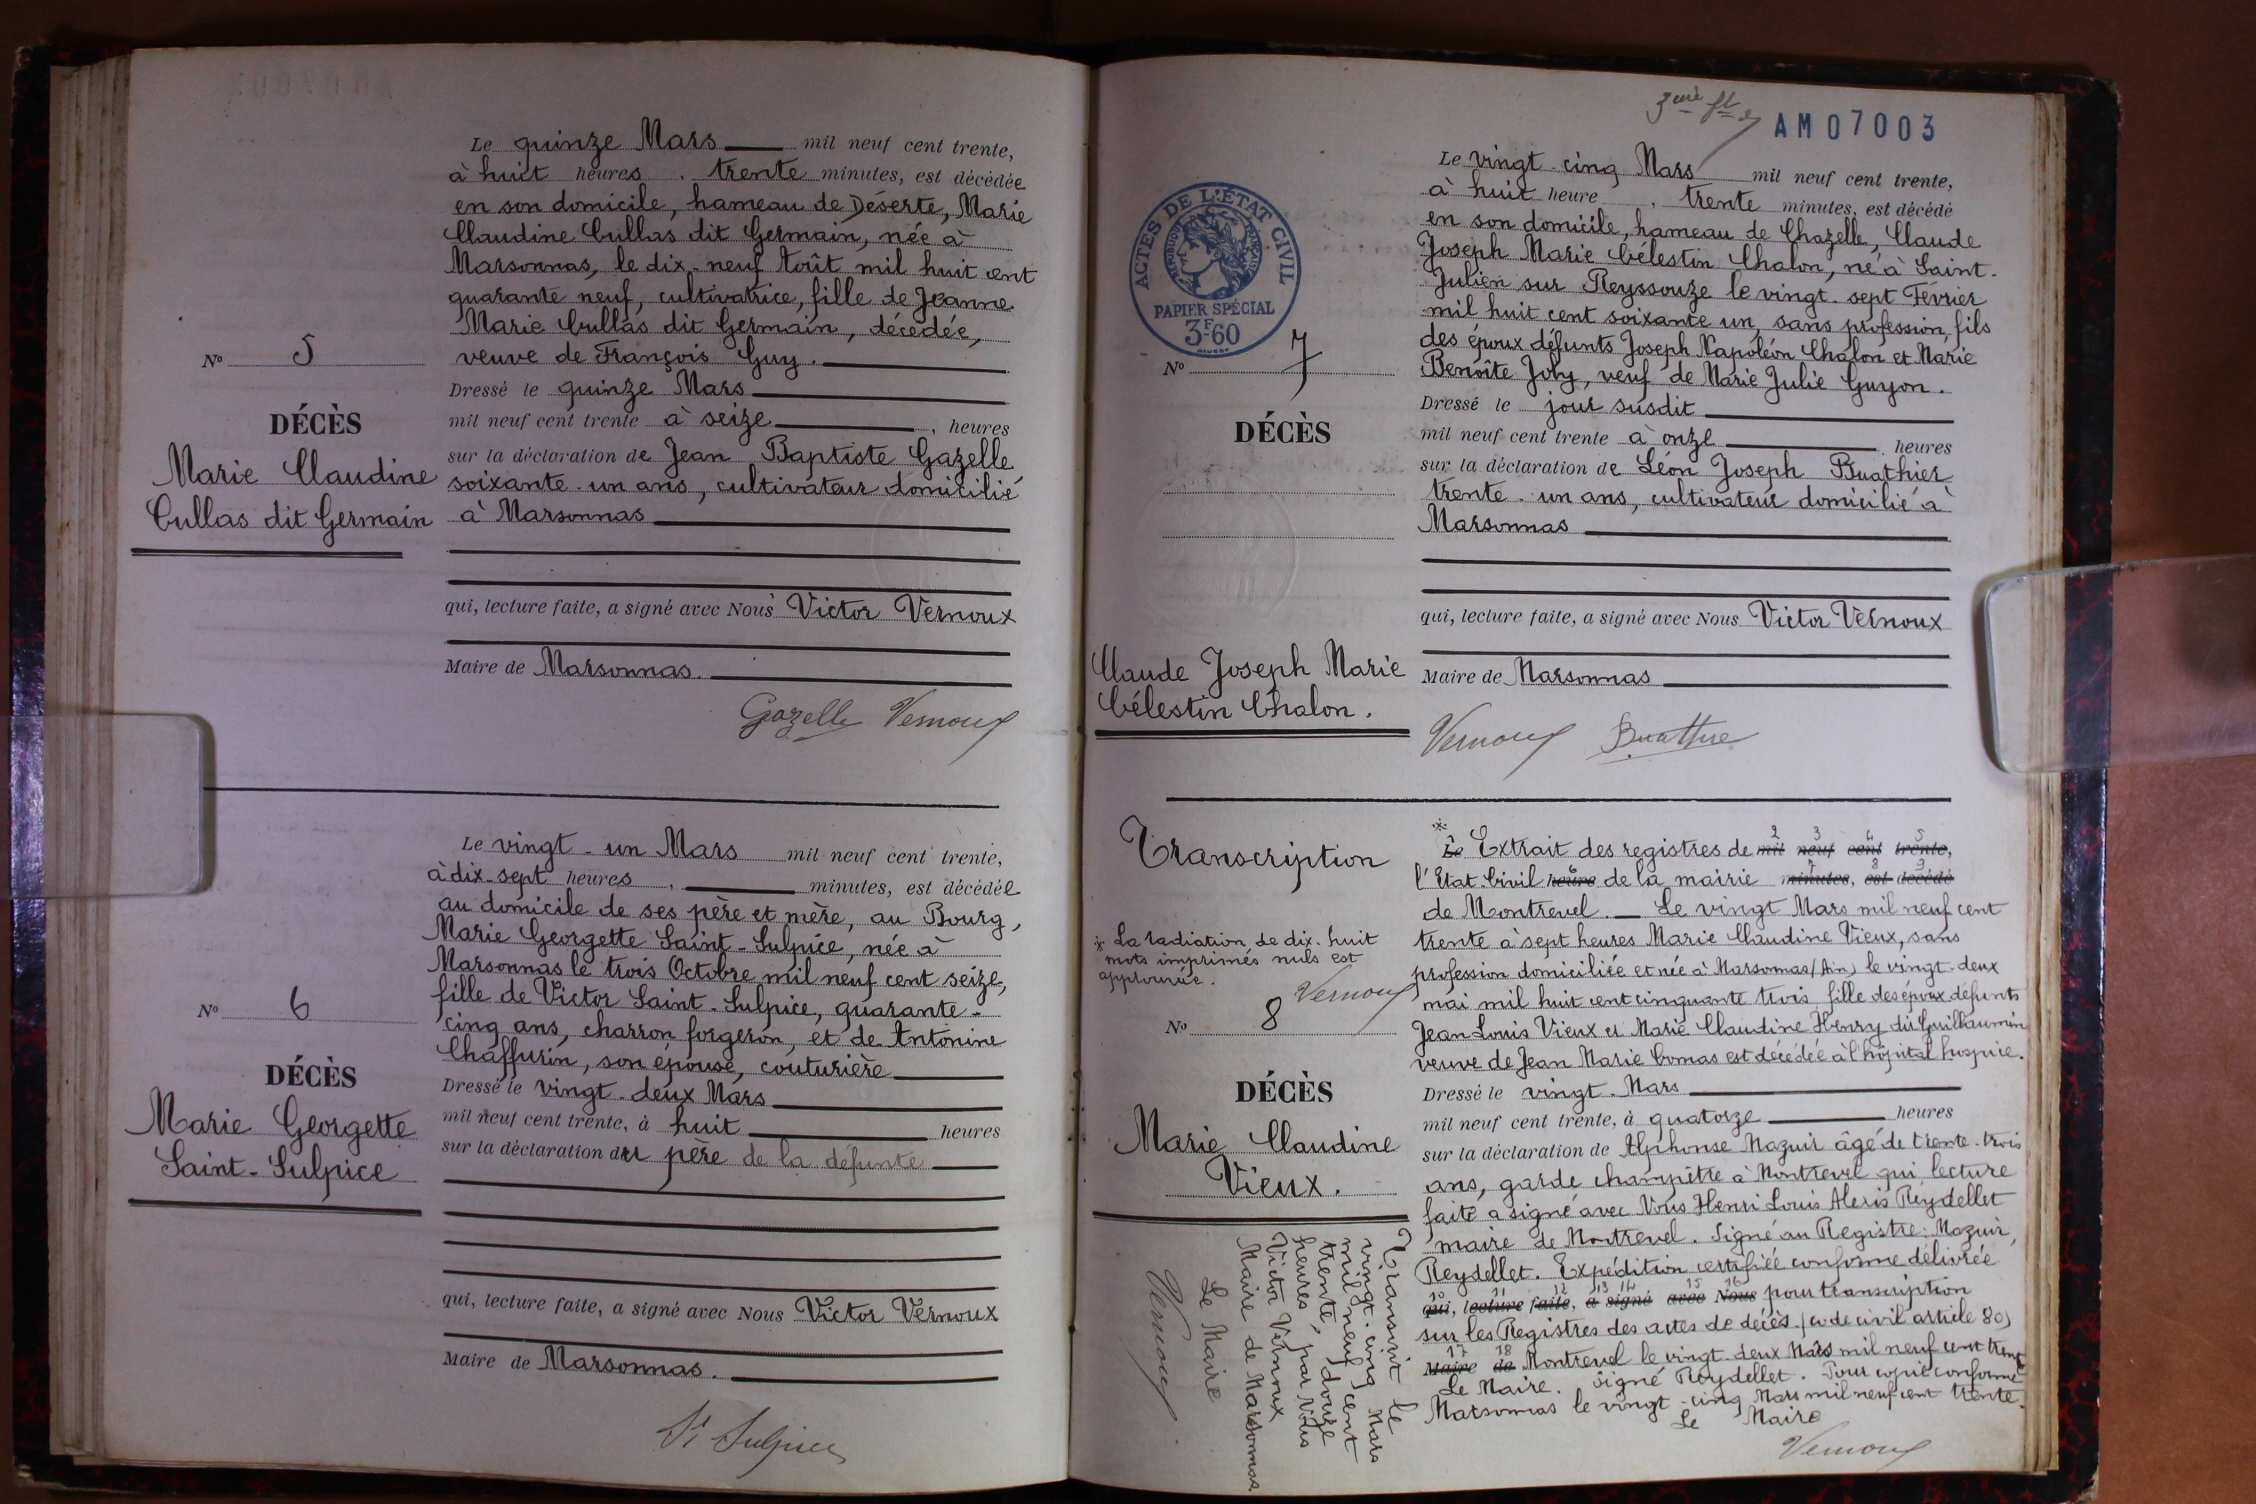 Le quinze Mars mil neuf cent trente,
à huit heures . trente minutes, est décédée
en son domicile, hameau de Déserte, Marie
Claudine Cullas dit Germain, née à
Marsonnas, le dix-neuf Août mil huit cent
quarante neuf, cultivatrice, fille de Jeanne
Marie Cullas dit Germain, décédée,
veuve de François Guy.
No 5
DÉCÈS
Marie Claudine
Cullas dit Germain
Dressé le quinze Mars
mil neuf cent trente à seize, heures
sur la déclaration de Jean Baptiste Gazelle
soixante-un ans, cultivateur domicilié
à Marsonnas
qui, lecture faite, a signé avec Nous Victor Vernoux
Maire de Marsonnas.
Gazelle Vernoux
Le vingt-un Mars mil neuf cent trente,
à dix-sept heures, minutes, est décédée
au domicile de ses père et mère, au Bourg,
Marie Georgette Saint-Sulpice, née à
Marsonnas le trois Octobre mil neuf cent seize,
fille de Victor Saint-Sulpice, quarante-
cinq ans, charron forgeron, et de Antonine
Chaffurin, son epouse, couturière
No 6
DÉCÈS
Marie Georgette
Saint-Sulpice
Dressé le vingt-deux Mars
mil neuf cent trente, à huit heures
sur la déclaration du père de la défunte
qui, lecture faite, a signé avec Nous Victor Vernoux
Maire de Marsonnas.
St Sulpice
3eme ft
AM07003
ACTES DE L'ÉTAT CIVIL
RÉPUBLIQUE FRANÇAISE
PAPIER SPÉCIAL
3F60
Le vingt-cinq Mars mil neuf cent trente,
à huit heure . trente minutes, est décédé
en son domicile, hameau de Chazelle, Claude
Joseph Marie Célestin Chalon, né à Saint-
Julien sur Reyssouze le vingt-sept Février
mil huit cent soixante un, sans profession, fils
des époux défunts Joseph Napoléon Chalon et Marie
Benoîte Joly, veuf de Marie Julie Guyon.
No 7
DÉCÈS
Claude Joseph Marie
Célestin Chalon.
Dressé le jour susdit
mil neuf cent trente à onze heures
sur la déclaration de Léon Joseph Buathier
trente-un ans, cultivateur domicilié à
Marsonnas
qui, lecture faite, a signé avec Nous Victor Vernoux
Maire de Marsonnas
Vernoux Buathier
Transcription
* La radiation de dix-huit
mots imprimés nuls est
approuvée.
Vernoux
No 8
DÉCÈS
Marie Claudine
Vieux.
*
1 2 3 4 5
Le Extrait des registres de mil neuf cent trente,
6 7 8 9
l'Etat-Civil heure de la mairie minutes, est décédé
de Montrevel. — Le vingt Mars mil neuf cent
trente à sept heures Marie Claudine Vieux, sans
profession domiciliée et née à Marsonnas (Ain) le vingt-deux
mai mil huit cent cinquante trois, fille des époux défunts
Jean Louis Vieux et Marie Claudine Henry dit Guillaumin
veuve de Jean Marie Comas est décédée à l'hôpital hospice.
Dressé le vingt Mars
mil neuf cent trente, à quatorze heures
sur la déclaration de Alphonse Mazuir âgé de trente-trois
ans, garde champêtre à Montrevel qui, lecture
faite a signé avec Nous Henri Louis Alexis Reydellet
maire de Montrevel. Signé au Registre: Mazuir,
Reydellet. Expédition certifiée conforme délivrée
10 11 12 13 14 15 16
qui, lecture faite, a signé avec Nous pour transcription
sur les Registres des actes de décès (code civil article 80)
17 18
Maire de Montrevel le vingt-deux Mars mil neuf cent trente
Le Maire. signé Reydellet. Pour copie conforme
Marsonnas le vingt-cinq Mars mil neuf cent trente.
Le Maire
Vernoux
Transcrit le
vingt-cinq Mars
mil neuf cent
trente, douze
heures, par Nous
Victor Vernoux
Maire de Marsonnas
Le Maire
Vernoux